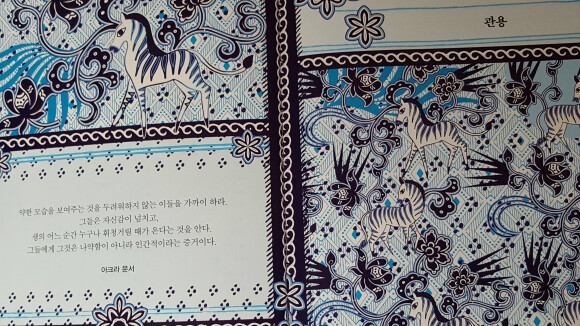 약한 모습을 보여주는 것을 두려워하지 않는 이들을 가까이 하라.
그들은 자신감이 넘치고,
생의 어느 순간 누구나 휘청거릴 때가 온다는 것을 안다.
그들에게 그것은 나약함이 아니라 인간적이라는 증거이다.
아크라 문서
관용